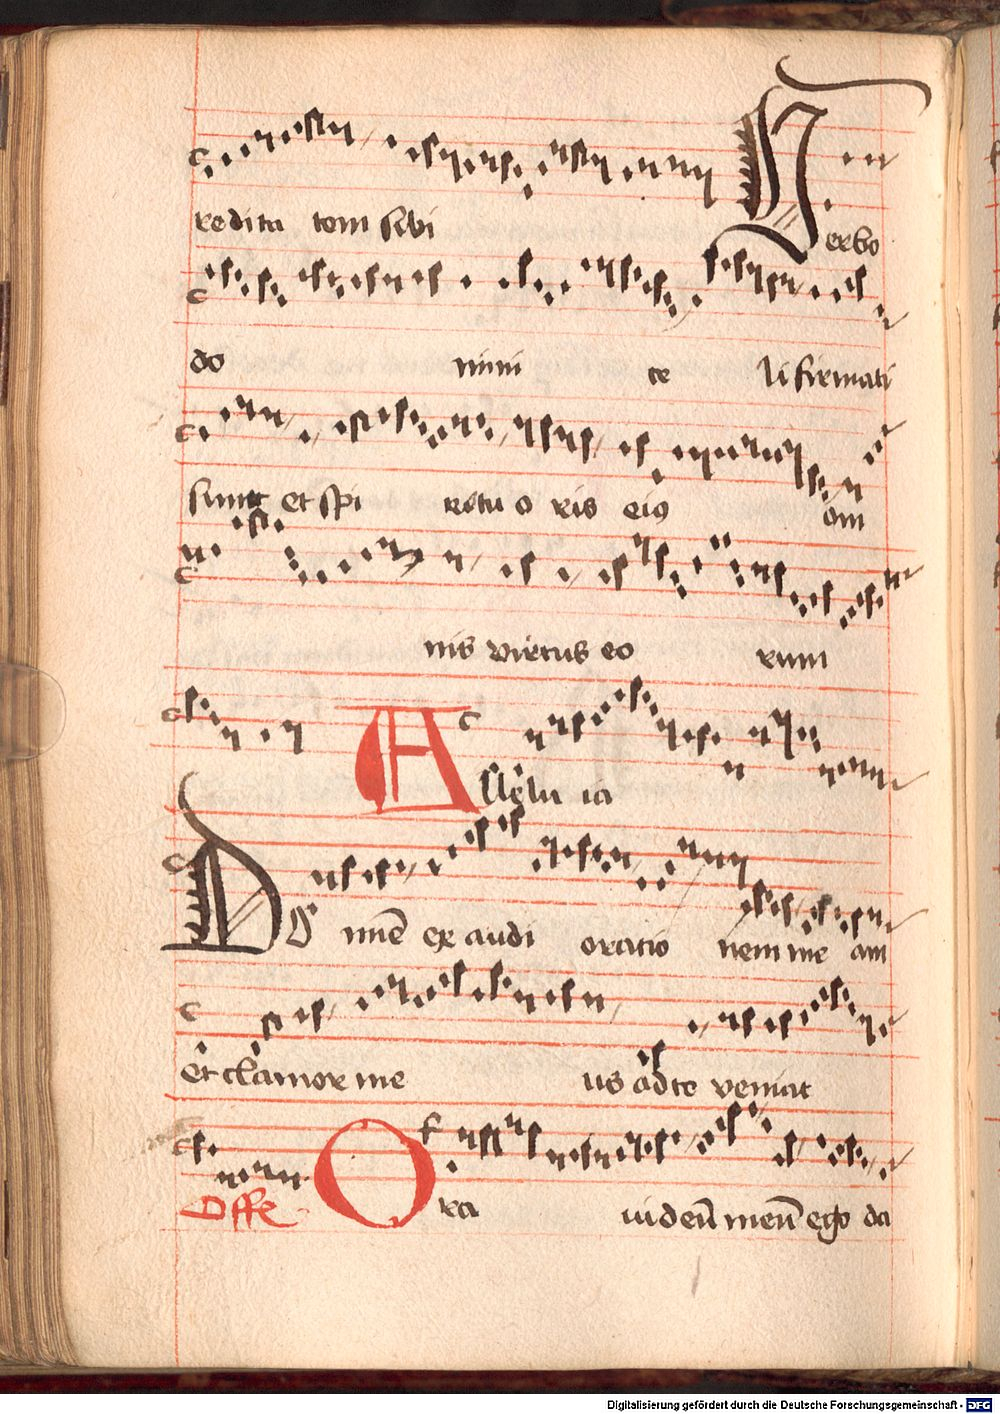 redita tem sibi Verbo
do mini ce li firmati
sunt et spi ritu o ris eiꝰ om
nis virtus eo rum
Allelu ia
Do mīe ex audi oratio nem me am
et clamor me us ad te veniat
Offe Ora ui deū meū ego da
Digitalisierung gefördert durch die Deutsche Forschungsgemeinschaft - DFG